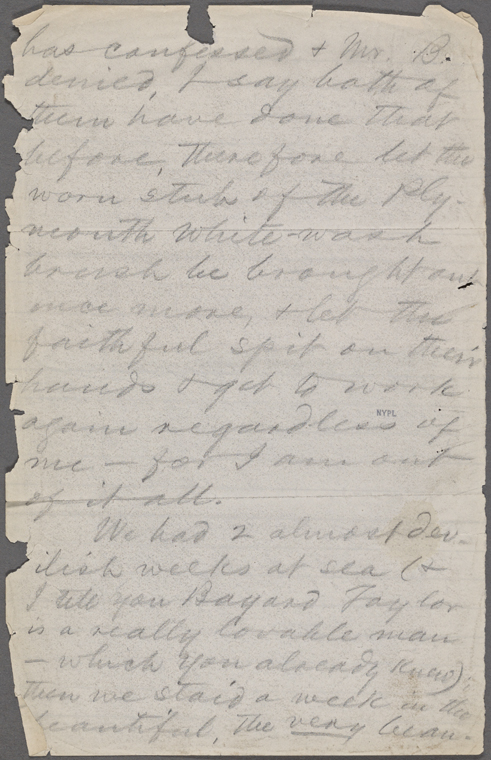 has confessed & Mr. B.
denied, I say both of
them have done that
before, therefore let the
worn stub of the Ply-
mouth white-wash
brush be brought out
once more, & let the
faithful spit on their
hands & get to work
again regardless of
NYPL
me — for I am out
of it all.
We had 2 almost dev-
ilish weeks at sea (&
I tell you Bayard Taylor
is a really lovable man
— which you already knew);
then we staid a week in the
beautiful, the very beau-